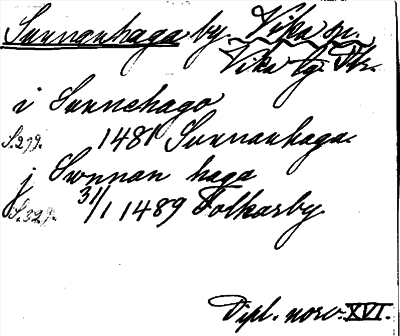 Sunnanhaga by. Vika sn.
Vika tg. Kbr.
i Sunnehago
S. 299. 1481 Sunnanhaga.
j Swnnan haga
S. 329. 31/1 1489 Folkarby
Dipl. norv. XVI.